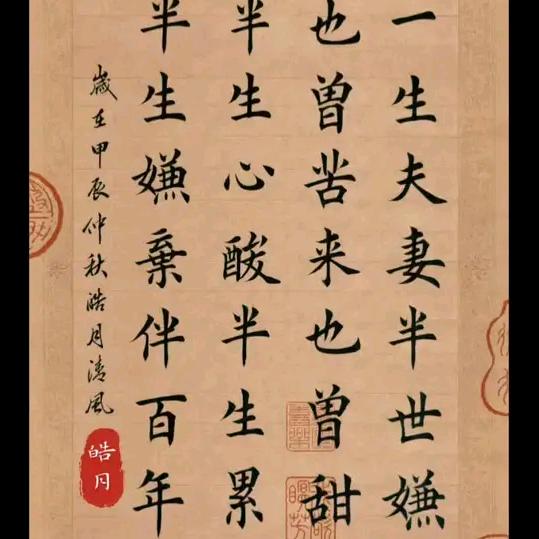 一生夫妻半世嫌
也曾苦来也曾甜
半生心酸半生累
半生嫌棄伴百年
歲在甲辰仲秋皓月清風
皓月